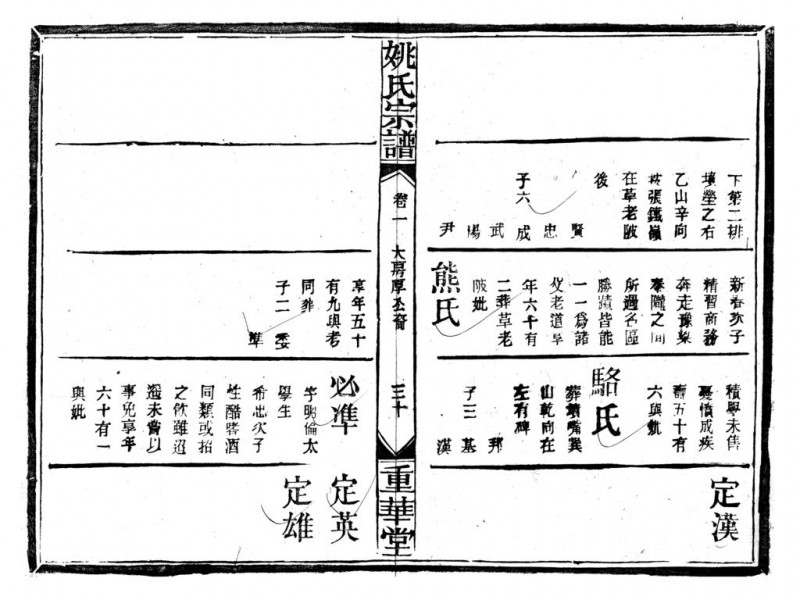 下第二排
墳塋之右
乙山辛向
在草老陂
後
子六
賢
忠
成
武
楊
尹
新春次子
精習商務
奔走豫
之間
所過名區
勝蹟皆能
一一爲諸
父老道早
年六十有
二葬草老
陂妣
熊氏
積學未售
憂憤成疾
壽五十有
六與
駱氏
葬
山乾向在
左有碑
子三
邦
基
漢
定漢
姚氏宗譜
卷一
大房厚丞裔
三十
重華堂
享年五十
有九與考
同葬
子二
準
必準
字明倫太
學生
希忠次子
性酷嗜酒
同類或招
之飲雖迢
遥未嘗以
事免享年
六十有一
與妣
定英
定雄